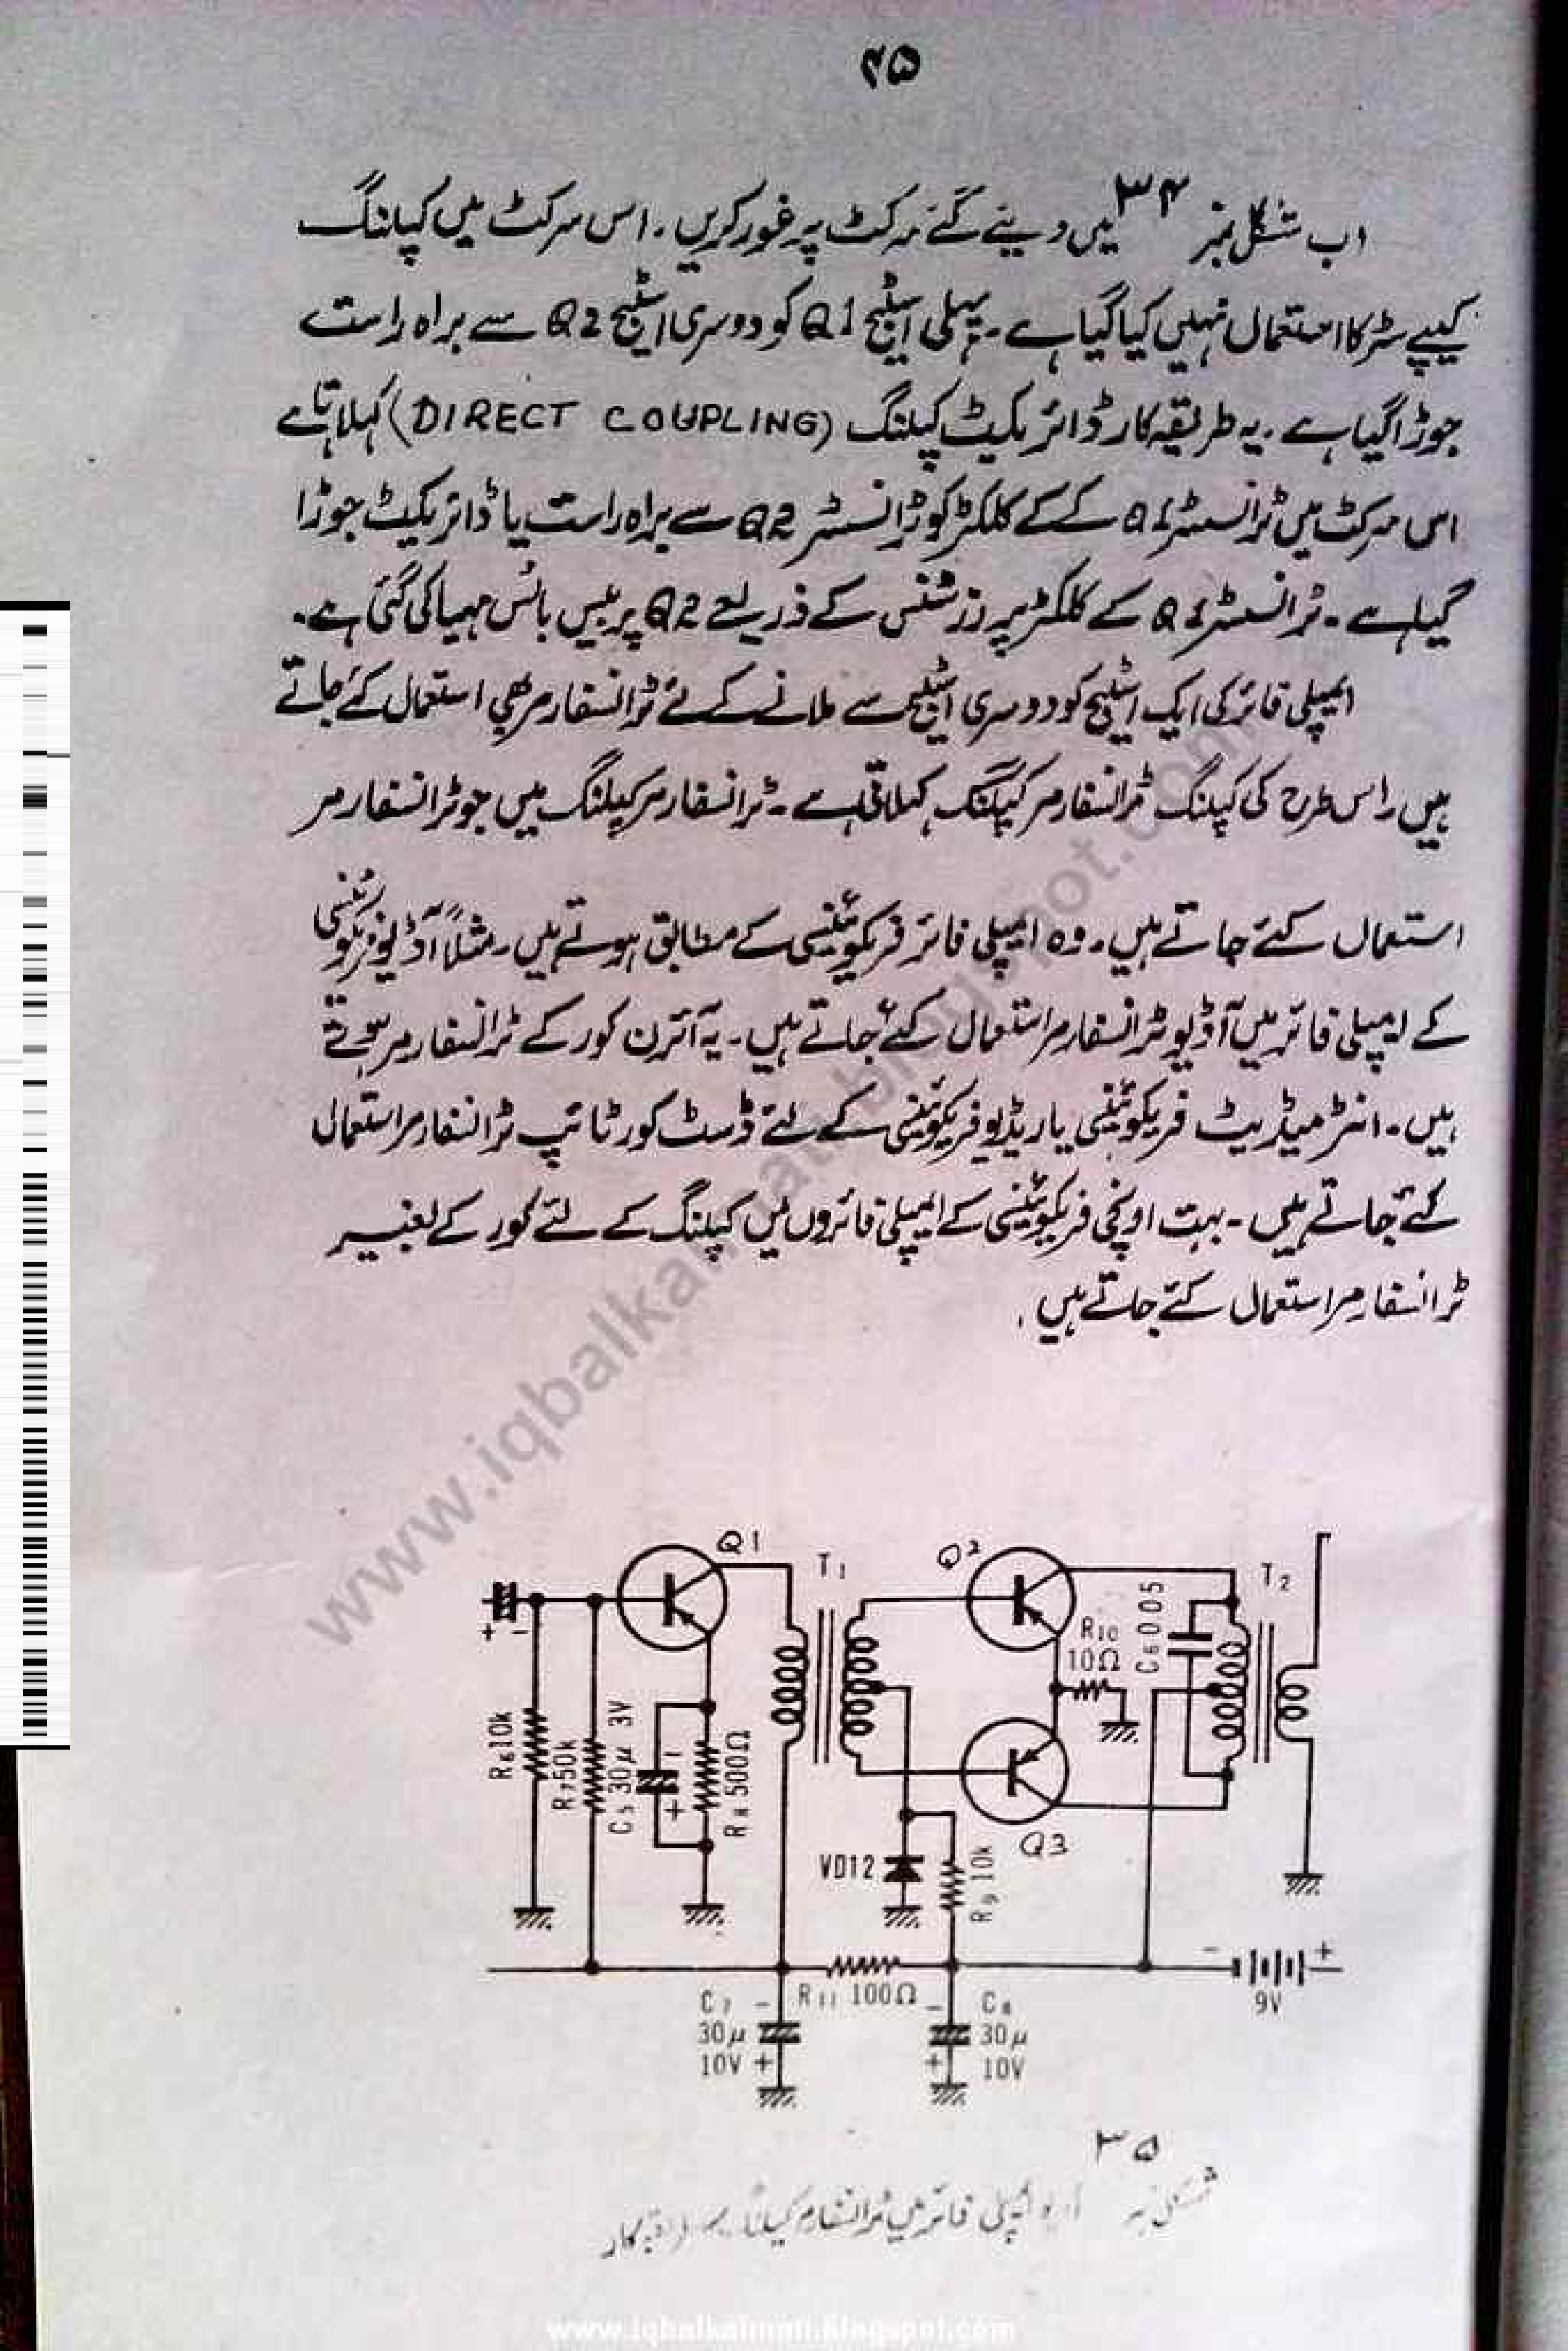 ۴۵
اب شکل نمبر ۳۴ میں دیئے گئے سرکٹ پر غور کریں۔ اس سرکٹ میں کپلنگ
کیپے سٹر کا استعمال نہیں کیا گیا ہے۔ پہلی اسٹیج Q1 کو دوسری اسٹیج Q2 سے براہ راست
جوڑا گیا ہے۔ یہ طریقہ کار ڈائریکیٹ کپلنگ (DIRECT COUPLING) کہلاتا ہے
اس سرکٹ میں ٹرانسسٹر Q1 کے کے کلکٹر کو ٹرانسسٹر Q2 سے براہ راست یا ڈائریکیٹ جوڑا
گیا ہے۔ ٹرانسسٹر Q1 کے کلکٹر پر رزسٹنس کے ذریعے Q2 پر بیس بائس مہیا کی گئی ہے۔
ایمپلی فائر کی ایک اسٹیج کو دوسری اسٹیج سے ملانے کے لئے ٹرانسفارمر بھی استعمال کئے جاتے
ہیں اس طرح کی کپلنگ ٹرانسفارمر کپلنگ کہلاتی ہے۔ ٹرانسفارمر کپلنگ میں جو ٹرانسفارمر
استعمال کئے جاتے ہیں۔ وہ ایمپلی فائر فریکوئینسی کے مطابق ہوتے ہیں۔ مثلاً آڈیو فریکوئینسی
کے ایمپلی فائر میں آڈیو ٹرانسفارمر استعمال کئے جاتے ہیں۔ یہ آئرن کور کے ٹرانسفارمر ہوتے
ہیں۔ انٹرمیڈیٹ فریکوئینسی یا ریڈیو فریکوئینسی کے لئے ڈسٹ کور ٹائپ ٹرانسفارمر استعمال
کئے جاتے ہیں۔ بہت اونچی فریکوئینسی کے ایمپلی فائروں میں کپلنگ کے لئے کور کے بغیر
ٹرانسفارمر استعمال کئے جاتے ہیں۔
www.iqbalkalmati.blogspot.com
Q1
T1
Q2
T2
+ -
R10
10Ω
C6 005
R6 10k
R7 50k
C5 30μ 3V
- +
R8 500Ω
Q3
VD12
R9 10k
- +
9V
C7 -
30μ
10V +
R11 100Ω
- C8
30μ
+ 10V
شکل نمبر ۳۵ آڈیو ایمپلی فائر میں ٹرانسفارمر کپلنگ کا طریقہ کار
www.iqbalkalmati.blogspot.com